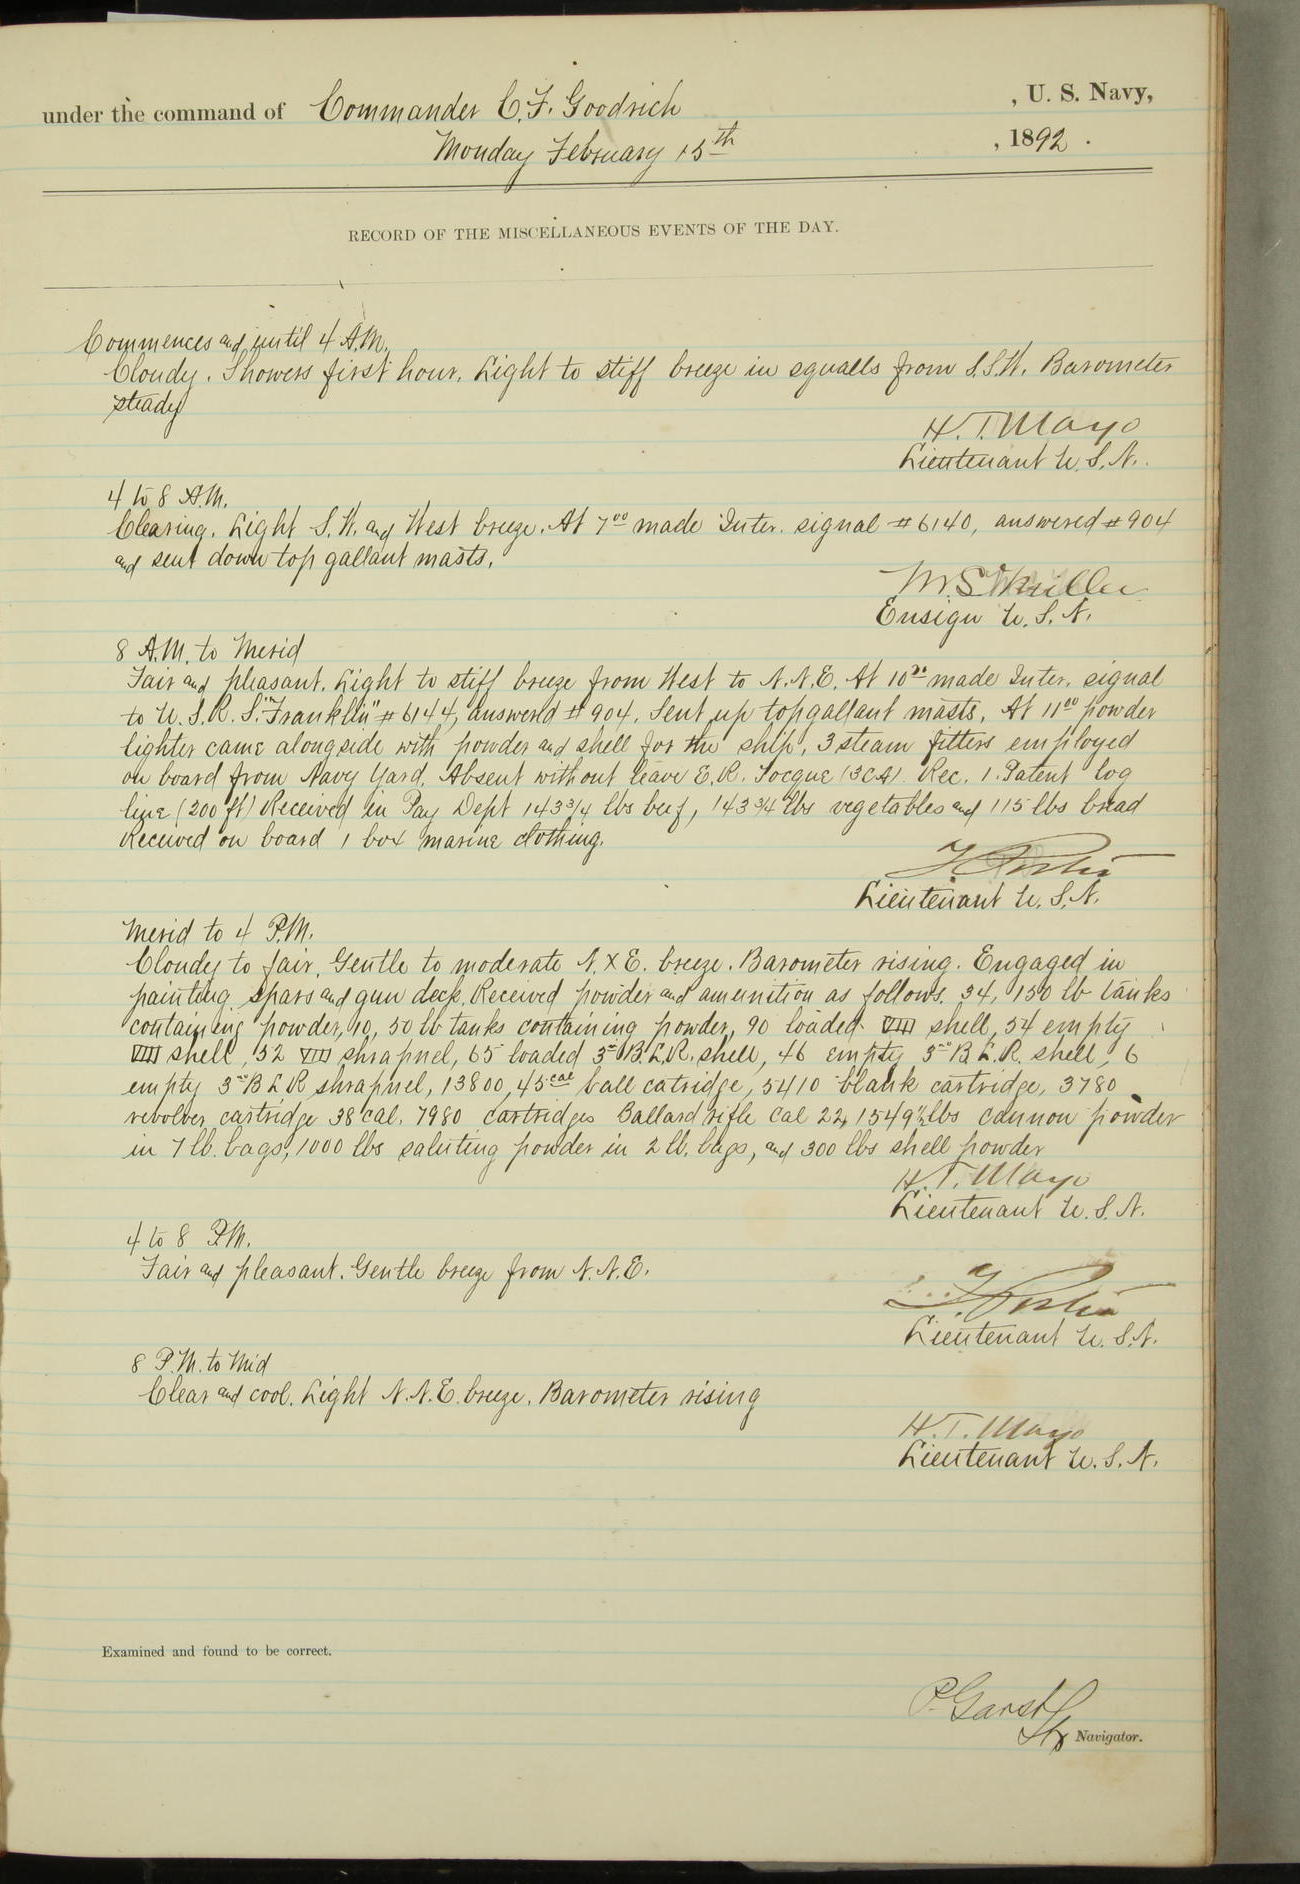 under the command of Commander C. F. Goodrich , U. S. Navy,
Monday February 15th , 1892 .
RECORD OF THE MISCELLANEOUS EVENTS OF THE DAY.
Commences and until 4 A.M.
Cloudy. Showers first hour. Light to stiff breeze in squalls from S.S.W. Barometer
steady
H. T. Mayo
Lieutenant U. S. N.
4 to 8 A.M.
Clearing. Light S.W. and West breeze. At 7 00 made Inter. signal # 6140, answered # 904
and sent down top gallant masts.
Ensign U. S. N.
8 A.M. to Merid
Fair and pleasant. Light to stiff breeze from West to N.N.E. At 10 made Inter. signal
to U. S. R. S. "Franklin" # 6144, answered # 904. Sent up topgallant masts. At 11 00 powder
lighter came alongside with powder and shell for the ship. 3 steam fitters employed
on board from Navy Yard. Absent without leave E. R. Rec. 1 Patent log
line (200 ft) Received in Pay Dept 143 3/4 lbs beef, 143 3/4 lbs vegetables and 115 lbs bread
Received on board 1 box marine clothing.
Lieutenant U. S. N.
Merid to 4 P.M.
Cloudy to fair. Gentle to moderate N. x E. breeze. Barometer rising. Engaged in
painting spars and gun deck. Received powder and amunition as follows. 34, 150 lb tanks
containing powder, 10, 50 lb tanks containing powder, 90 loaded VIII shell, 54 empty
VIII shell, 32 VIII shrapnel, 65 loaded 3" B.L.R. shell, 46 empty 3" B.L.R. shell, 6
empty 3" B L R shrapnel, 13800, 45 cal ball catridge, 5410 blank cartridge, 3780
revolver cartridge 38 cal. 7980 cartridges Ballard rifle cal 22, 1549 1/2 lbs cannon powder
in 7 lb. bags, 1000 lbs saluting powder in 2 lb. bags, and 300 lbs shell powder
H. T. Mayo
Lieutenant U. S. N.
4 to 8 P.M.
Fair and pleasant. Gentle breeze from N. N. E.
Lieutenant U. S. N.
8 P. M. to Mid
Clear and cool. Light N. N. E. breeze. Barometer rising
H. T. Mayo
Lieutenant U. S. N.
Examined and found to be correct.
P. Garst
Navigator.